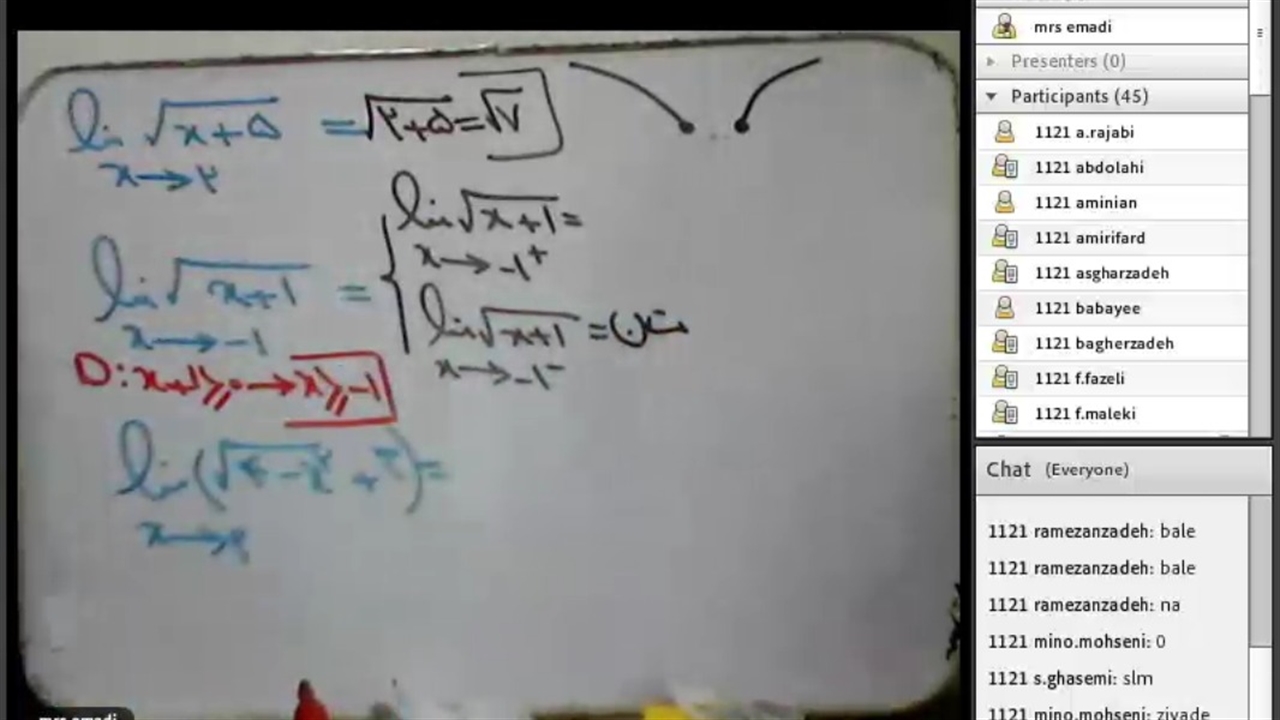 lim √x+۵ = √۲+۵ = √۷
x→۲
lim √x+۱ =
x→-۱⁺
lim √x+۱ =
x→-۱
lim √x+۱ =
x→-۱⁻
D: x+۱≥۰ → x≥-۱
lim(√۴-x² + ۳) =
x→۲
mrs emadi
mrs emadi
Presenters (0)
Participants (45)
1121 a.rajabi
1121 abdolahi
1121 aminian
1121 amirifard
1121 asgharzadeh
1121 babayee
1121 bagherzadeh
1121 f.fazeli
1121 f.maleki
Chat (Everyone)
1121 ramezanzadeh: bale
1121 ramezanzadeh: bale
1121 ramezanzadeh: na
1121 mino.mohseni: 0
s.ghasemi: slm
1121 mino.mohseni: ziyade